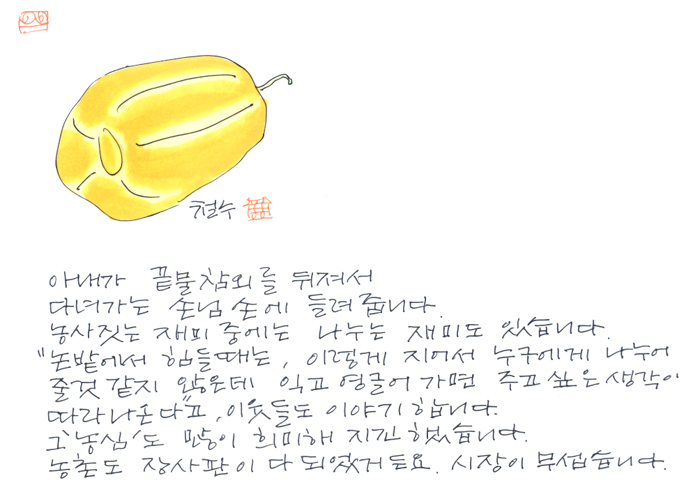 철수
아내가 끝물참외를 뒤져서
다녀가는 손님 손에 들려줍니다.
농사짓는 재미 중에는 나누는 재미도 있습니다.
"논밭에서 힘들때는, 이렇게 지어서 누구에게 나누어
줄것 같지 않은데 익고 영글어 가면 주고 싶은 생각이
따라나온다"고, 이웃들도 이야기 합니다.
그 '농심'도 많이 희미해 지긴 했습니다.
농촌도 장사판이 다 되었거든요. 시장이 무섭습니다.